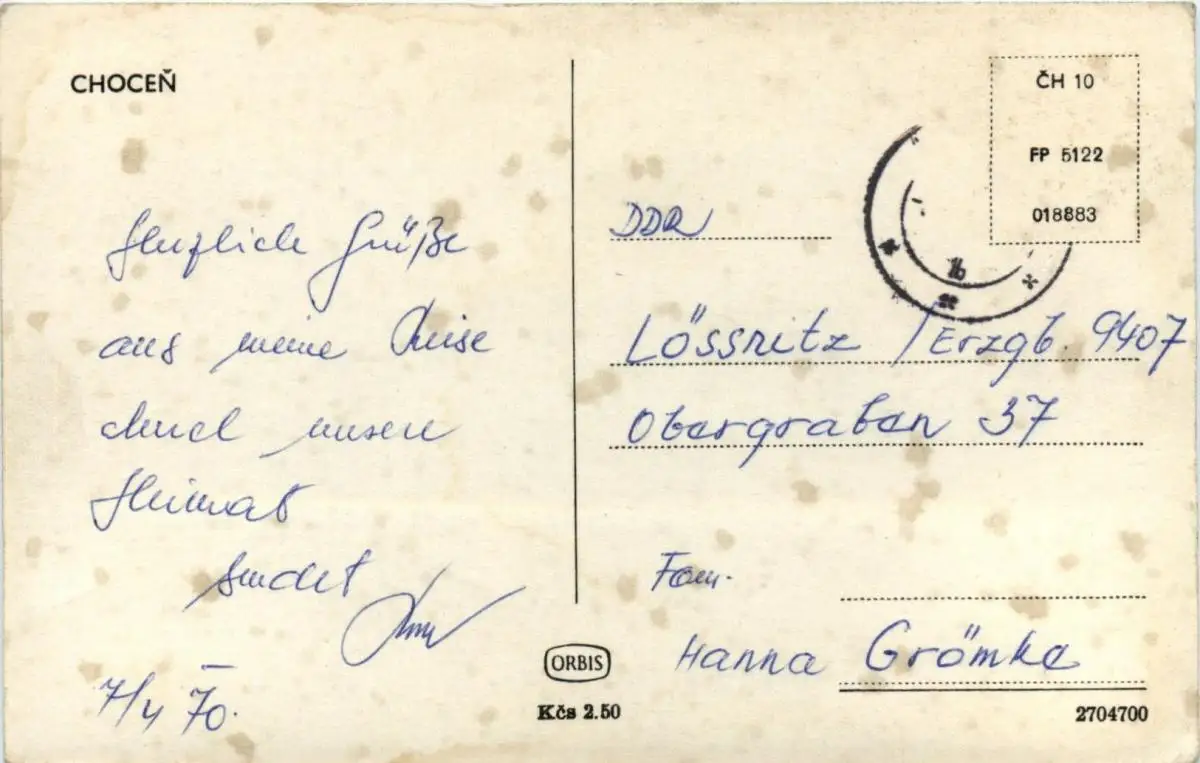 CHOCEŇ
Herzliche Grüße
aus meine Reise
durch unsere
Heimat
sendet
7/4 70.
ORBIS
Kčs 2.50
ČH 10
FP 5122
018883
DDR
Lössnitz / Erzgb. 9407
Obergraben 37
Fam.
Hanna Grömke
2704700